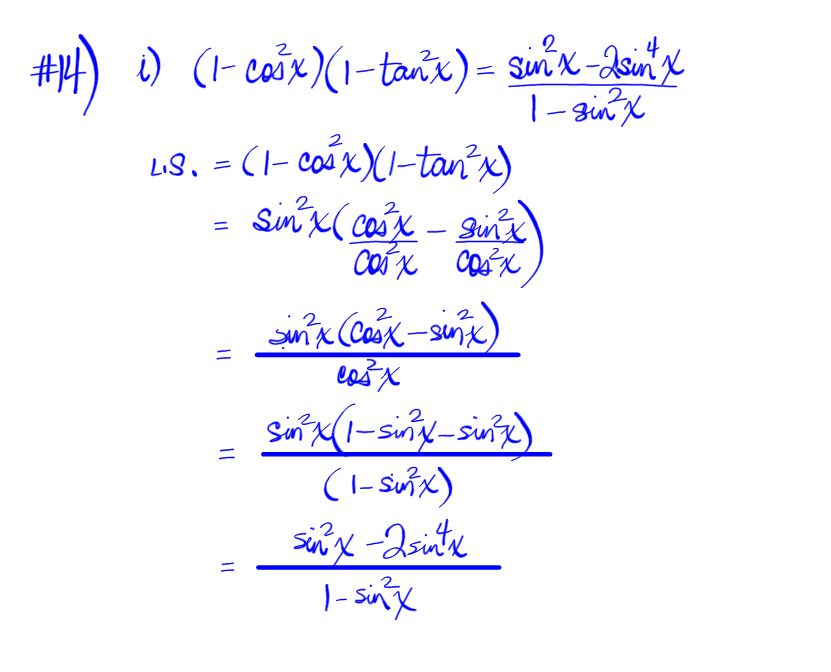 #14) i) (1-cos²x)(1-tan²x) = (sin²x - 2sin⁴x)/(1 - sin²x)
L.S. = (1-cos²x)(1-tan²x)
= sin²x(cos²x/cos²x - sin²x/cos²x)
= sin²x(cos²x - sin²x)/cos²x
= sin²x(1-sin²x-sin²x)/(1-sin²x)
= (sin²x - 2sin⁴x)/(1-sin²x)